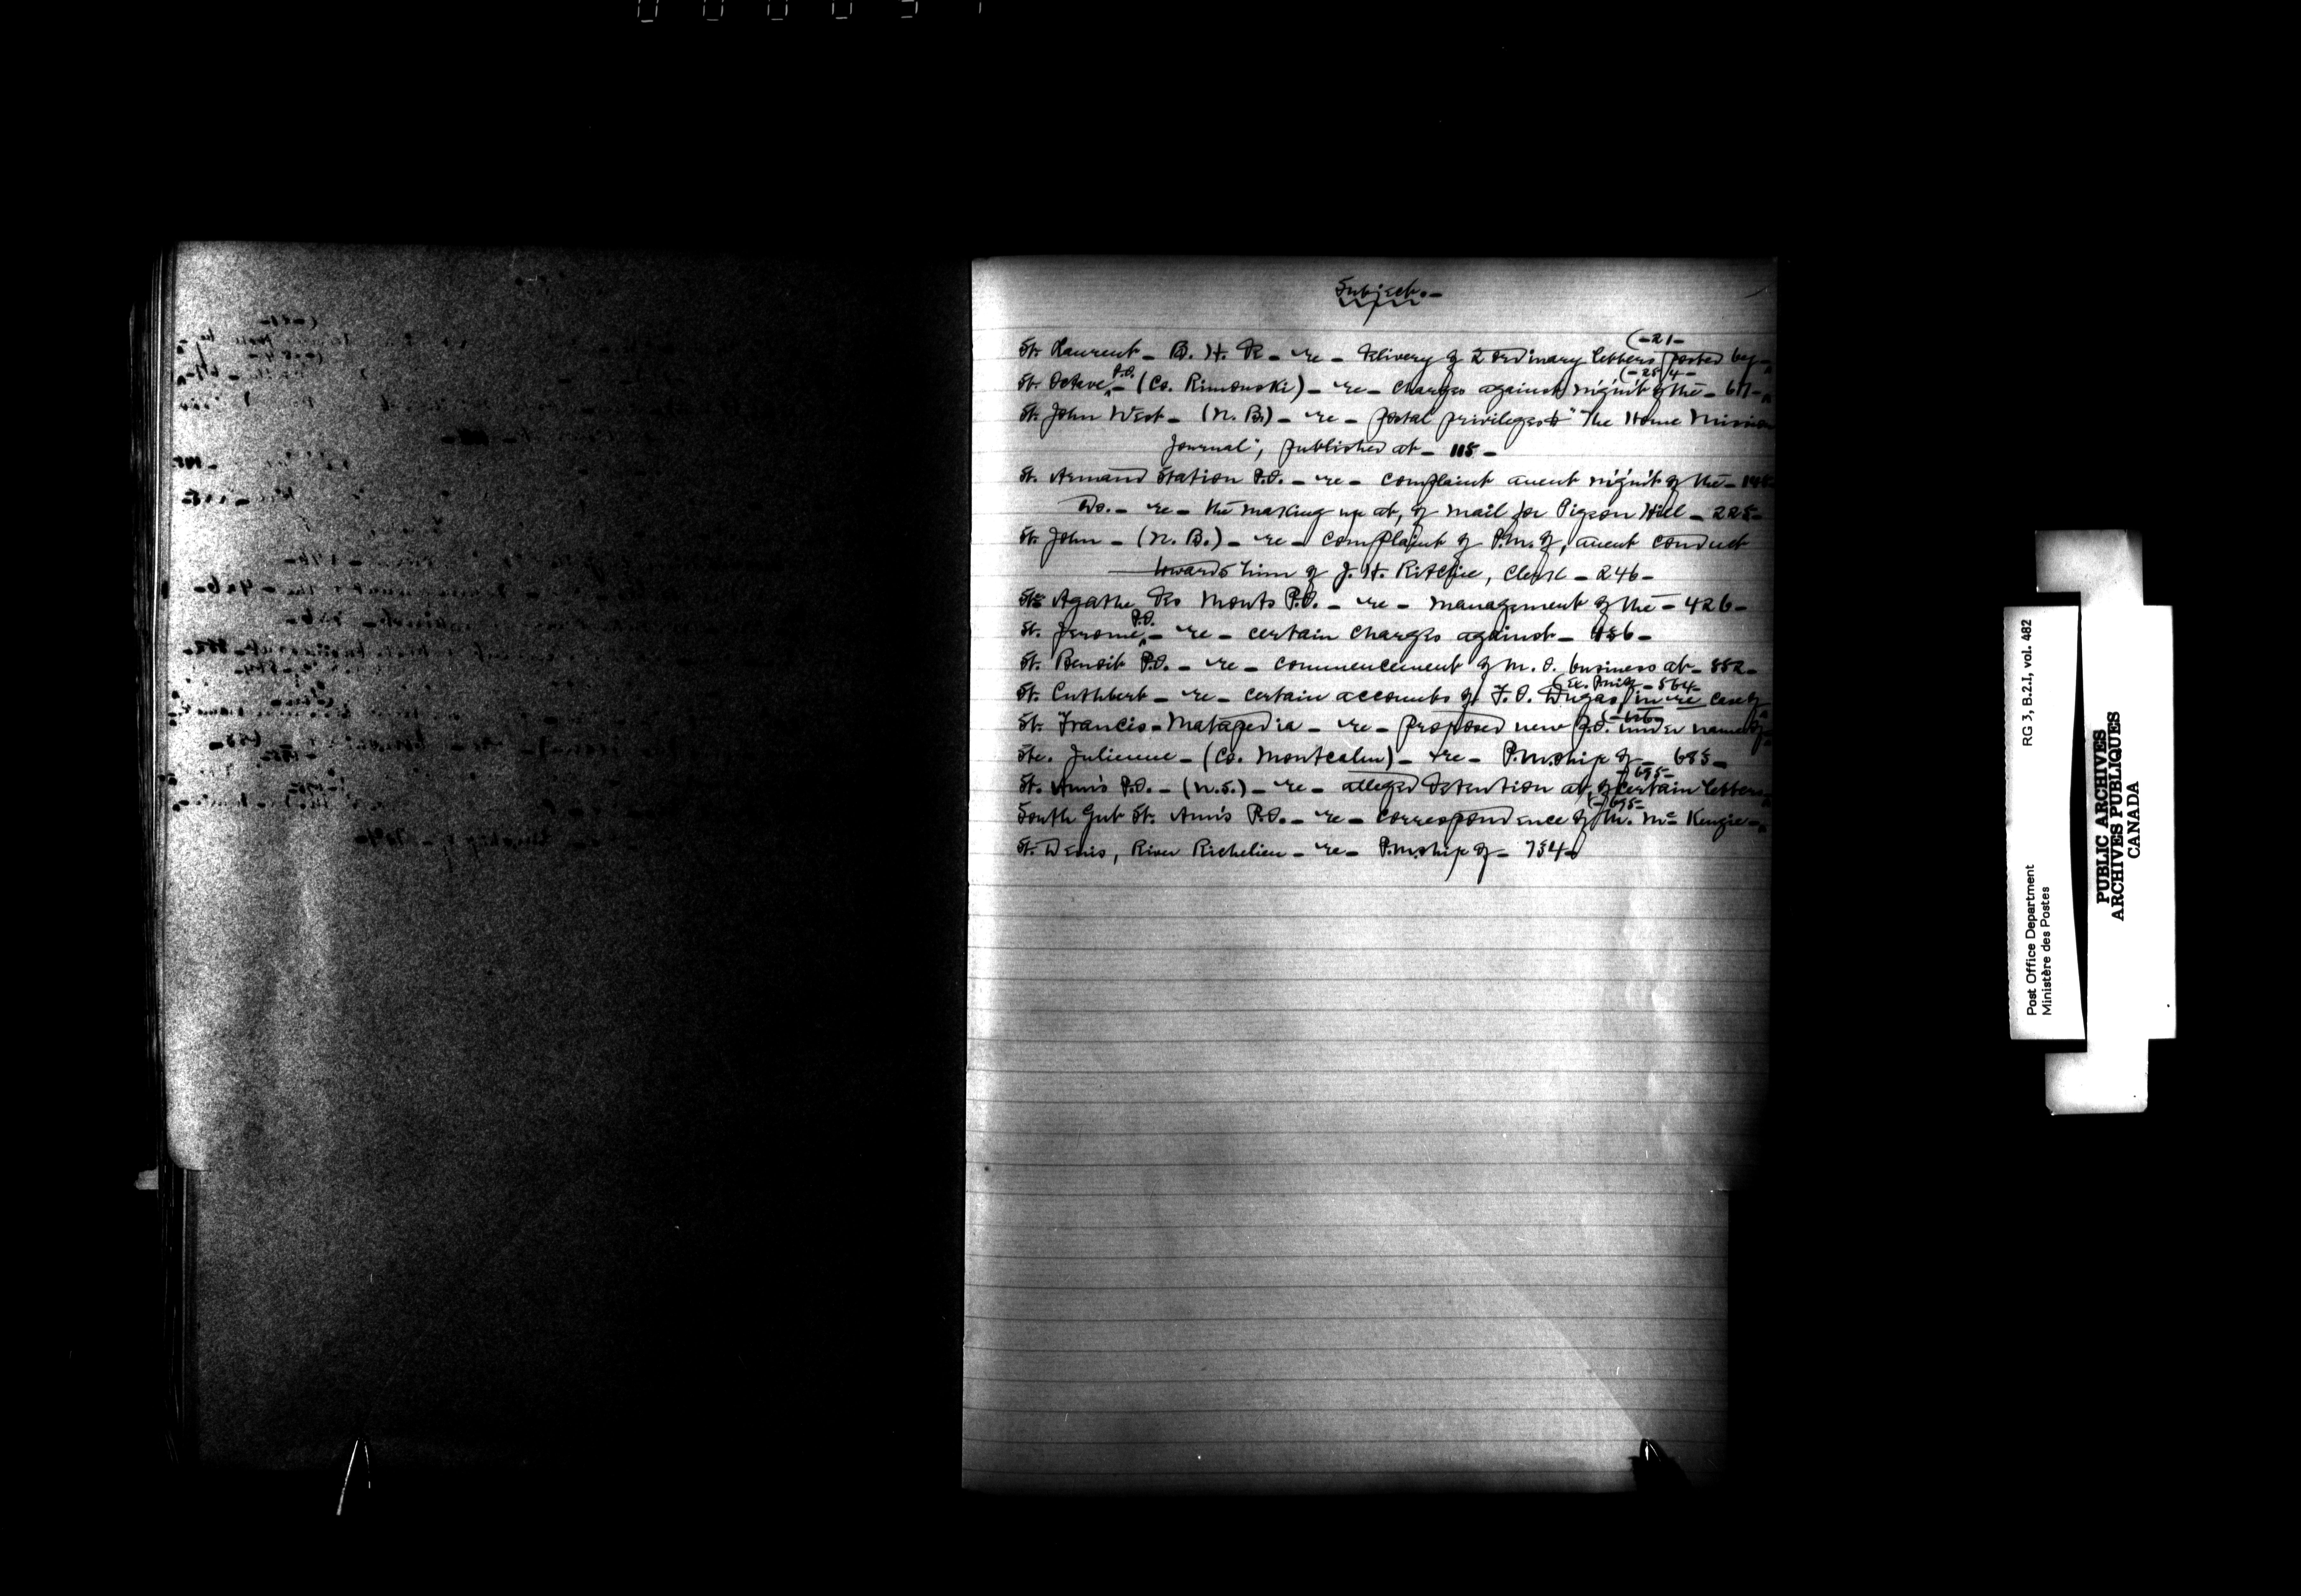 Subject.-
(-21-
St. Laurent - B. H. R - re - delivery of 2 ordinary letters posted by -
P.O. (-25/4-
St. Octave - (Co. Rimouski) - re - charges against m'g'm't of the - 67-
St. John West - (N. B.) - re - postal privileges to "The Home Mission
Journal", published at - 115 -
St. Armand Station P.O. - re - complaint anent m'g'm't of the -
Do. - re - the making up at, of mail for Pigeon Hill - 225-
St. John - (N. B.) - re - complaint of P.M. of, anent conduct
towards him of J. H. Ritchie, Clerk - 246 -
Ste Agathe des Monts P.O. - re - management of the - 426 -
P.O.
St. Jerome - re - certain charges against - 456 -
St. Benoit P.O. - re - commencement of M. O. business at - 552 -
- 564-
St. Cuthbert - re - certain accounts of F. O. Dugas, in re case of
St. Francis - Matapedia - re - proposed new P.O. under name of -
Ste. Julienne - (Co. Montcalm) - re - P.M.ship of - 685 -
- 695-
St. Ann's P.O. - (N.S.) - re - alleged detention at, of certain letters -
(- 695-
South Gut St. Ann's P.O. - re - correspondence of M. Mc Kenzie -
St. Denis, River Richelieu - re - P.M.ship of - 734 -
Post Office Department
Ministère des Postes
RG 3, B.2.I, vol. 482
PUBLIC ARCHIVES
ARCHIVES PUBLIQUES
CANADA